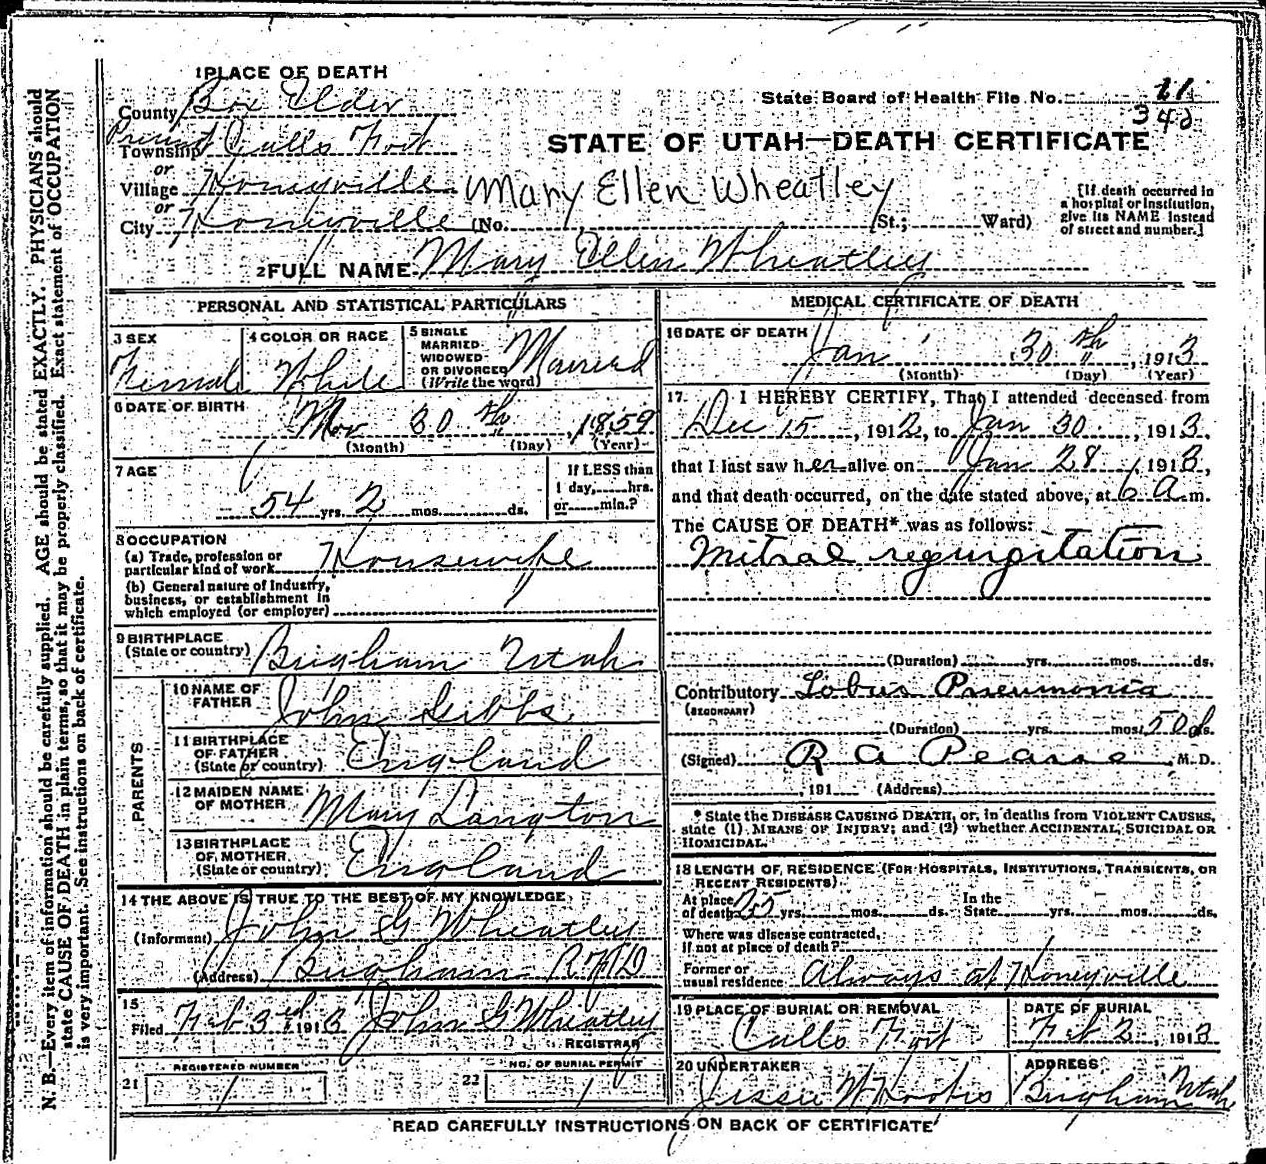 N. B.—Every item of information should be carefully supplied. AGE should be stated EXACTLY. PHYSICIANS should
state CAUSE OF DEATH in plain terms, so that it may be properly classified. Exact statement of OCCUPATION
is very important. See instructions on back of certificate.
1 PLACE OF DEATH
County Box Elder
State Board of Health File No. 11
342
Precinct
Township Calls Fort
STATE OF UTAH—DEATH CERTIFICATE
or
Village Honeyville Mary Ellen Wheatley
or
City Honeyville (No. St.; Ward)
[If death occurred in
a hospital or institution,
give its NAME instead
of street and number.]
2 FULL NAME Mary Ellen Wheatley
PERSONAL AND STATISTICAL PARTICULARS
3 SEX
Female
4 COLOR OR RACE
White
5 SINGLE
MARRIED
WIDOWED
OR DIVORCED
(Write the word)
Married
6 DATE OF BIRTH
Nov 30th, 1859
(Month) (Day) (Year)
7 AGE
54 yrs. 2 mos. ds.
If LESS than
1 day, hrs.
or min.?
8 OCCUPATION
(a) Trade, profession or
particular kind of work Housewife
(b) General nature of industry,
business, or establishment in
which employed (or employer)
9 BIRTHPLACE
(State or country) Brigham Utah
PARENTS
10 NAME OF
FATHER John Gibbs
11 BIRTHPLACE
OF FATHER
(State or country) England
12 MAIDEN NAME
OF MOTHER Mary Langton
13 BIRTHPLACE
OF MOTHER
(State or country) England
14 THE ABOVE IS TRUE TO THE BEST OF MY KNOWLEDGE
(Informant) John G Wheatley
(Address) Brigham R.F.D
15
Filed Feb 3rd 1913 John G Wheatley
REGISTRAR
21 REGISTERED NUMBER
1
22 NO. OF BURIAL PERMIT
1
MEDICAL CERTIFICATE OF DEATH
16 DATE OF DEATH
Jan 30th, 1913
(Month) (Day) (Year)
17. I HEREBY CERTIFY, That I attended deceased from
Dec 15, 1912, to Jan 30, 1913,
that I last saw her alive on Jan 28, 1913,
and that death occurred, on the date stated above, at 6 a.m.
The CAUSE OF DEATH* was as follows:
Mitral regurgitation
(Duration) yrs. mos. ds.
Contributory Lobus Pneumonia
(SECONDARY)
(Duration) yrs. mos. 50 ds.
(Signed) R A Pearse, M. D.
, 191 (Address)
* State the DISEASE CAUSING DEATH, or, in deaths from VIOLENT CAUSES,
state (1) MEANS OF INJURY; and (2) whether ACCIDENTAL, SUICIDAL OR
HOMICIDAL.
18 LENGTH OF RESIDENCE (FOR HOSPITALS, INSTITUTIONS, TRANSIENTS, OR
RECENT RESIDENTS)
At place
of death 25 yrs. mos. ds.
In the
State yrs. mos. ds.
Where was disease contracted,
if not at place of death?
Former or
usual residence Always at Honeyville
19 PLACE OF BURIAL OR REMOVAL
Calls Fort
DATE OF BURIAL
Feb 2, 1913
20 UNDERTAKER
Jessie W Hoopes
ADDRESS
Brigham Utah
READ CAREFULLY INSTRUCTIONS ON BACK OF CERTIFICATE